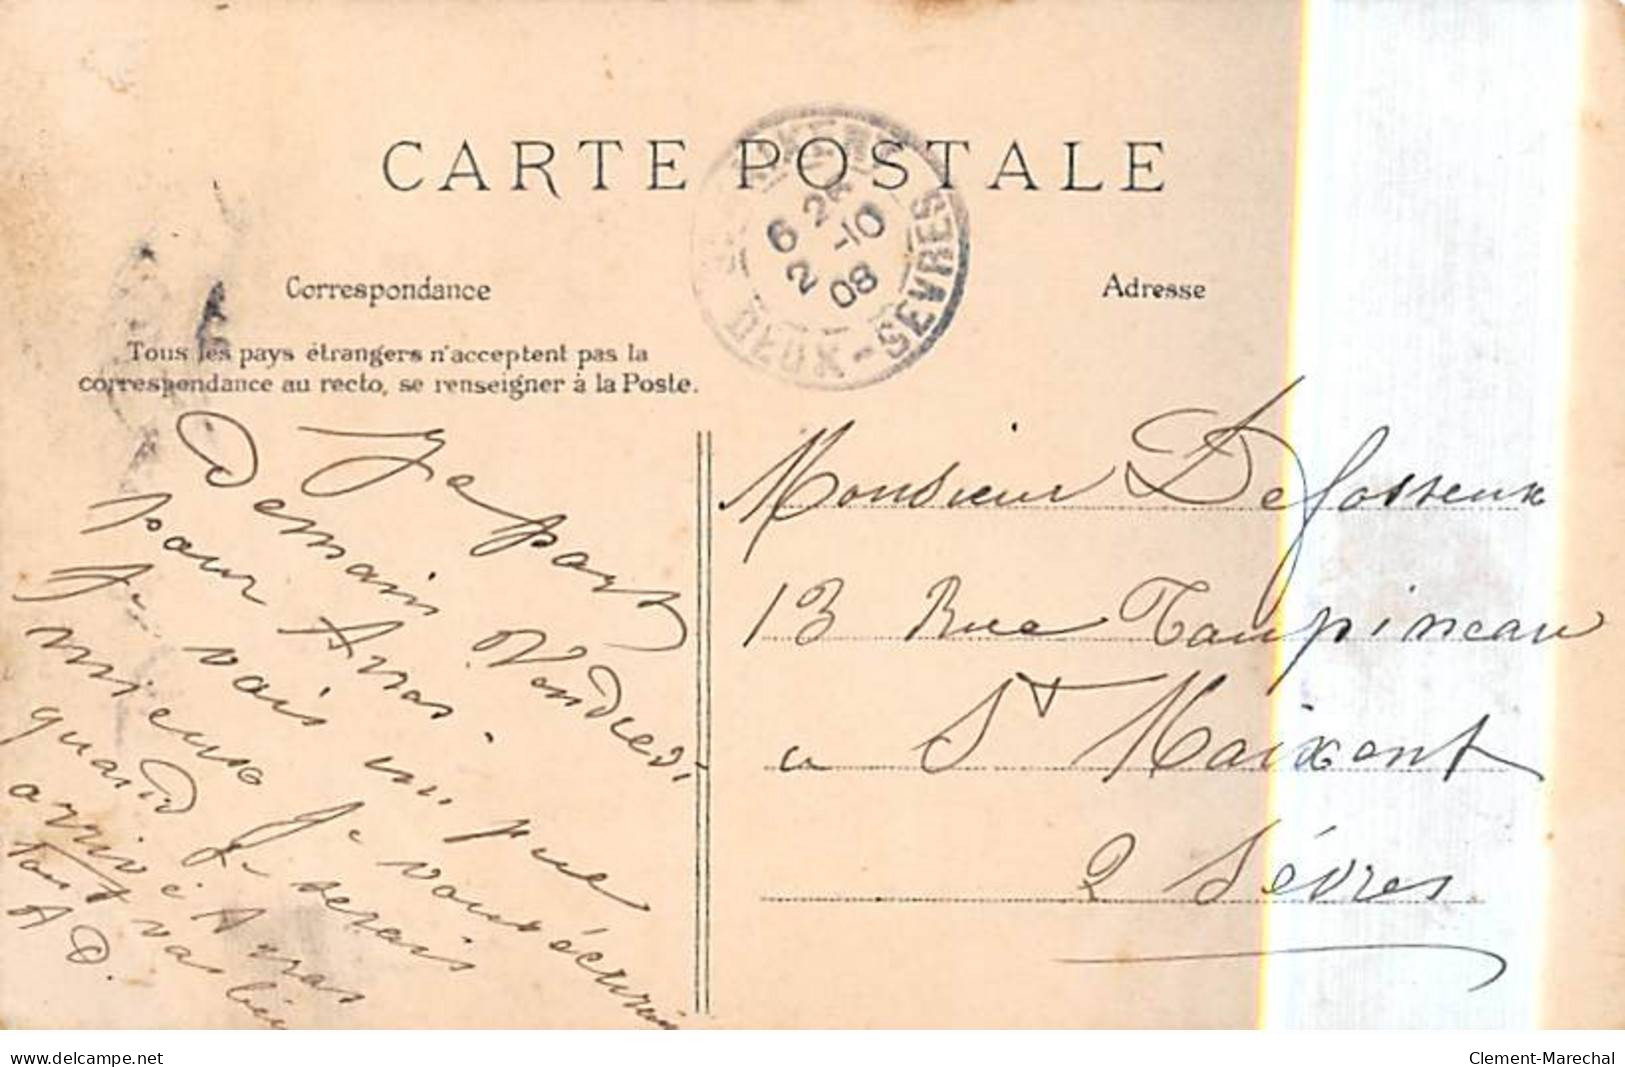 CARTE POSTALE
6 25
2 -10
08
DEUX-SEVRES
Correspondance
Adresse
Tous les pays étrangers n'acceptent pas la
correspondance au recto, se renseigner à la Poste.
Je pars
Demain Vendredi
pour Arras.
Je vais un peu
mieux je vous écurai
quand Je serais
arrivé Arras
Tout va bien
A D.
Monsieur Defosseux
13 Rue Taupineau
a St Maixent
2 Sèvres
www.delcampe.net
Clement-Marechal